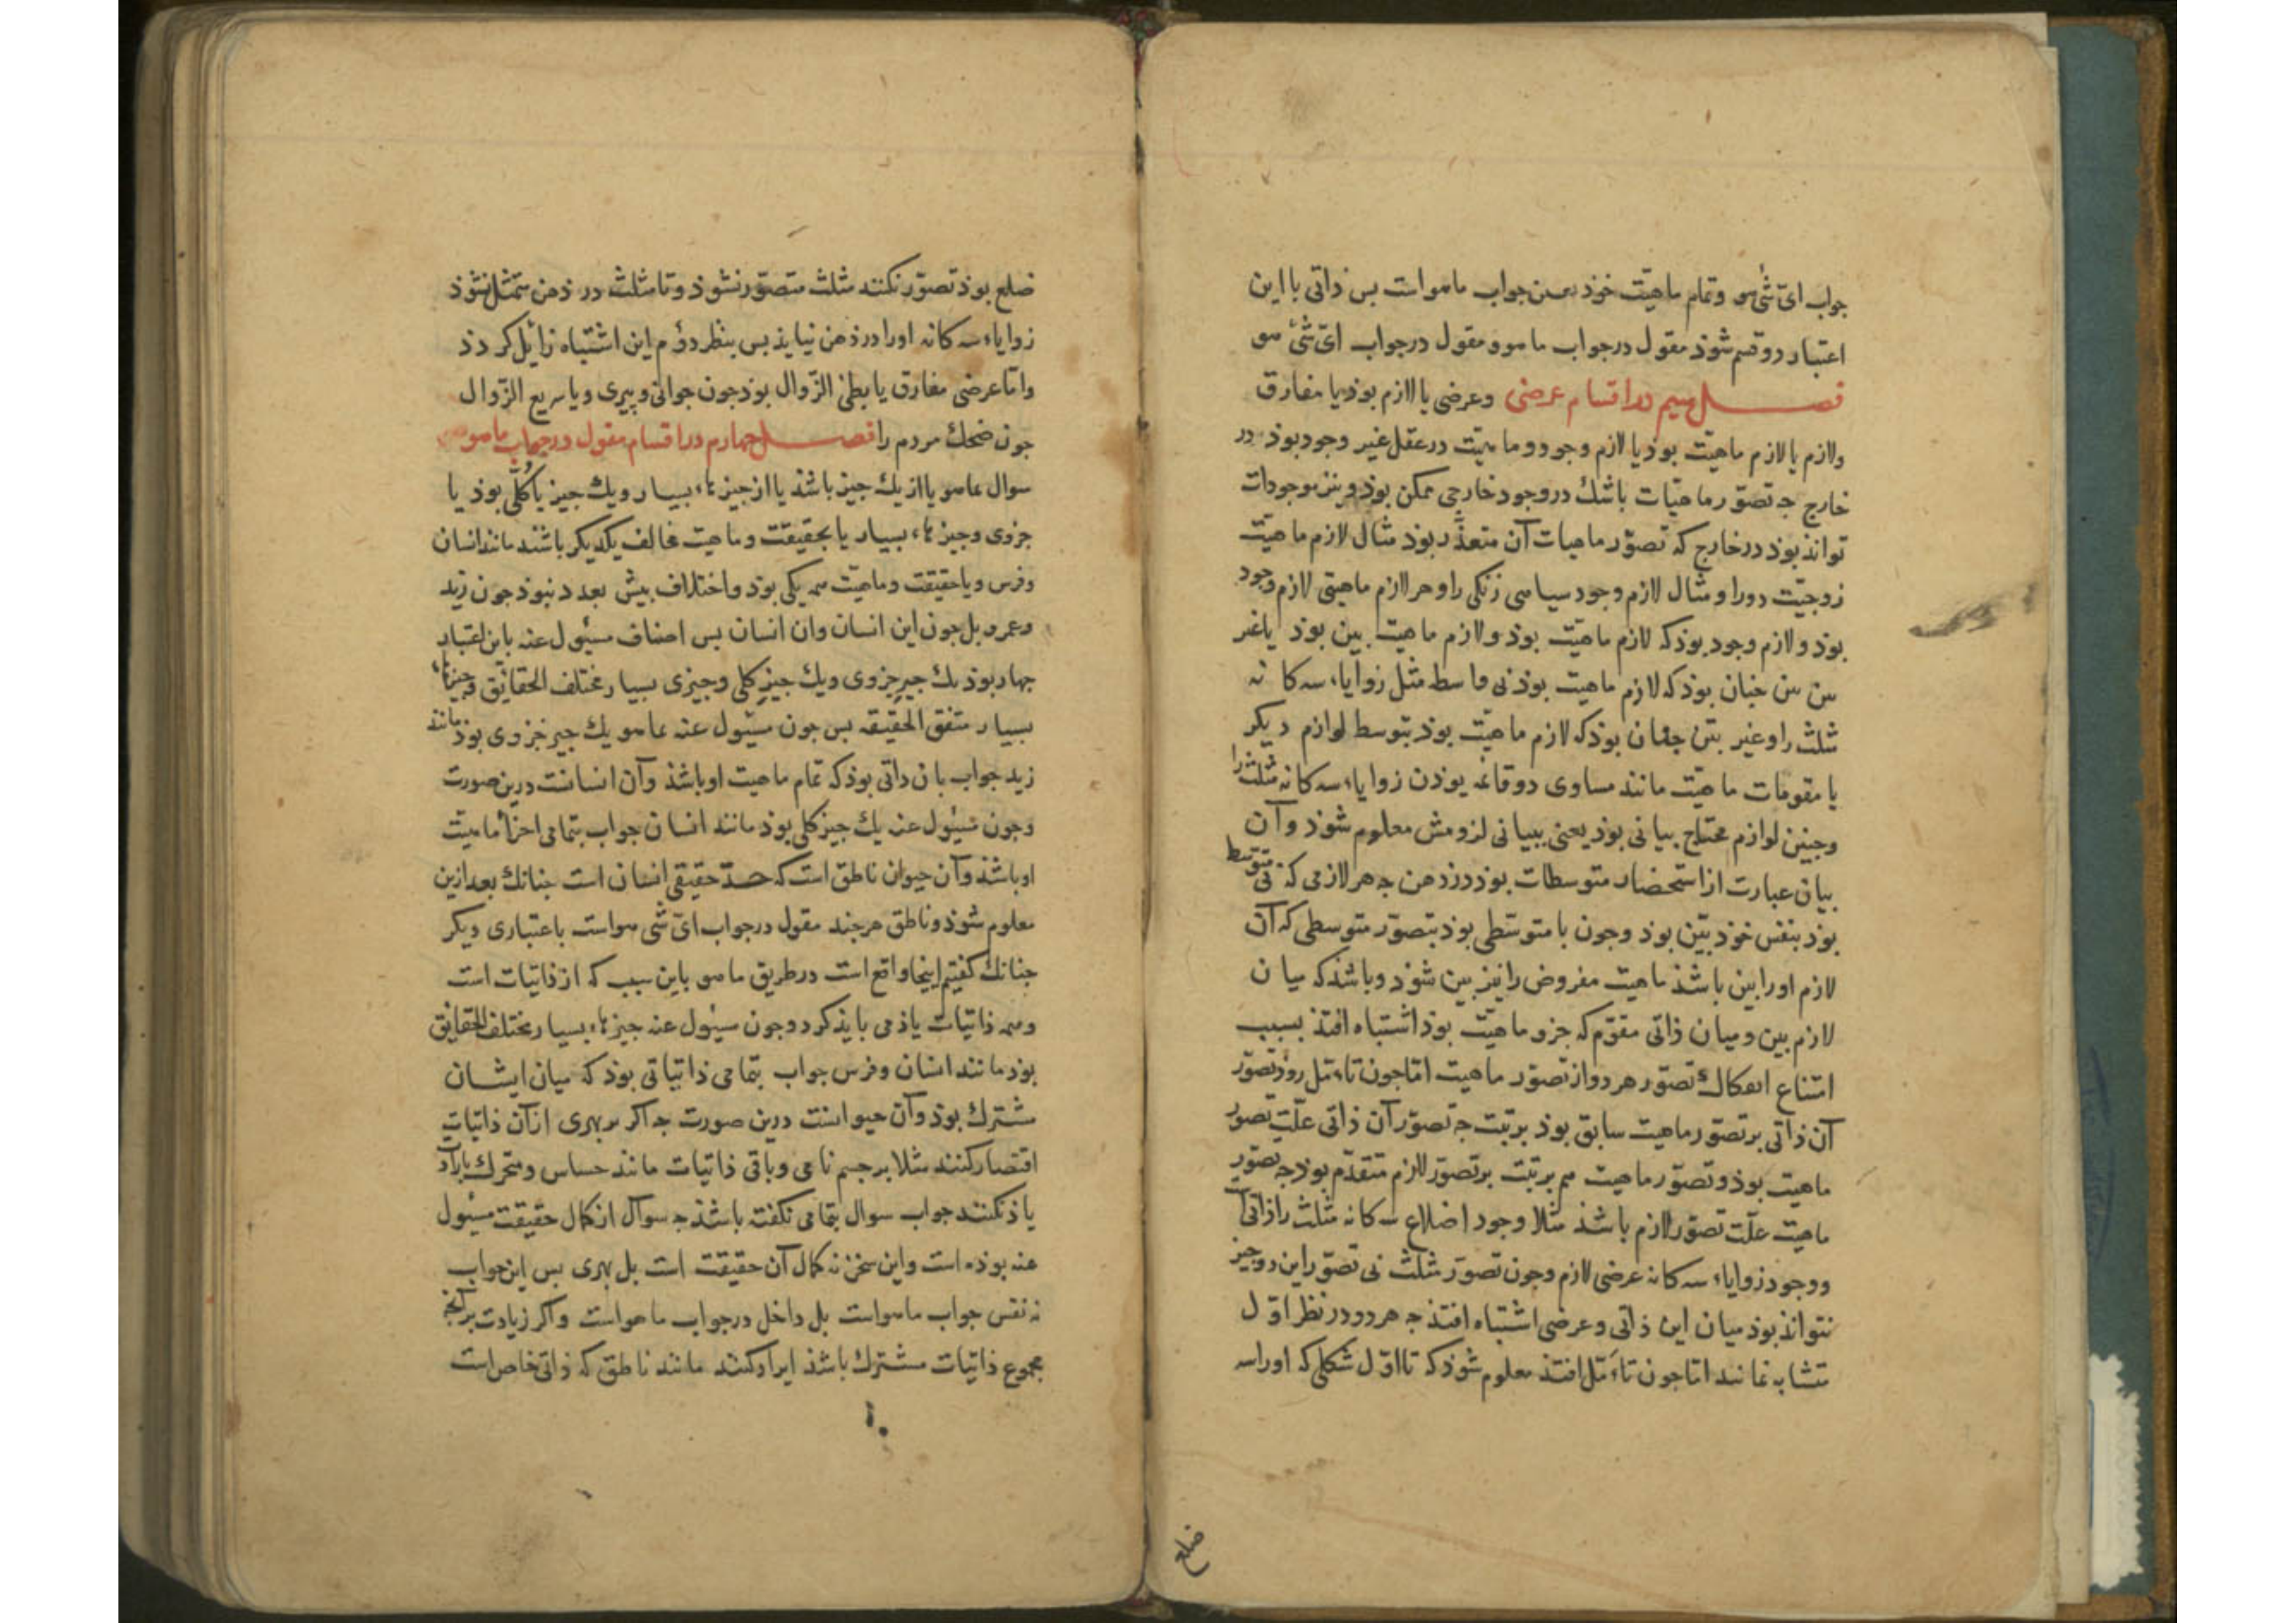 جواب ای شی هو وتمام ماهیت خوذ جواب ماهو است بس ذاتی با این
اعتبار دو قسم شوذ مقول درجواب ماهو ومقول درجواب ای شی هو
فصل سیم در اقسام عرضی وعرضی یا لازم بوذ یا مفارق
ولازم یا لازم ماهیت بوذ یا لازم وجود وماهیت درعقل غیر وجود بوذ در
خارج جه تصور ماهیات باشك دروجود خارجی ممکن بوذ ونیز موجودات
تواند بوذ درخارج که تصور ماهیات آن متعذر بوذ مثال لازم ماهیت
زوجیت دورا ومثال لازم وجود سیاهی زنکی را وهر لازم ماهیتی لازم وجود
بوذ ولازم وجود بوذ که لازم ماهیت بوذ ولازم ماهیت بین بوذ یا غیر
بین بین جنان بوذ که لازم ماهیت بوذ نی واسطه مثل زوایاء سه کانه
مثلث را وغیر بین جنان بوذ که لازم ماهیت بوذ بتوسط لوازم دیکر
یا مقومات ماهیت مانند مساوی دو قائمه بوذن زوایاء سه کانه مثلث را
وجنین لوازم محتاج بیانی بوذ یعنی ببیانی لزومش معلوم شوذ وآن
بیان عبارت از استحضار متوسطات بوذ در ذهن جه هر لازمی که نی متوسط
بوذ بنفس خوذ بین بوذ وجون با متوسطی بوذ بتصور متوسطی که آن
لازم اورا بین باشذ ماهیت مفروض را نیز بین شوذ وباشذ که میان
لازم بین ومیان ذاتی مقوم که جزو ماهیت بوذ اشتباه افتذ بسبب
امتناع انفکاك تصور هر دو از تصور ماهیت اما جون تاءمل روذ تصور
آن ذاتی بر تصور ماهیت سابق بوذ برتبت جه تصور آن ذاتی علت تصور
ماهیت بوذ وتصور ماهیت هم برتبت بر تصور لازم متقدم بوذ جه تصور
ماهیت علت تصور لازم باشذ مثلا وجود اضلاع سه کانه مثلث را ذاتی است
ووجود زوایاء سه کانه عرضی لازم وجون تصور مثلث نی تصور این دو جیز
نتواند بوذ میان این ذاتی وعرضی اشتباه افتذ جه هر دو در نظر اول
متشابه نمانند اما جون تاءمل افتذ معلوم شوذ که تا اول شکلی که اورا سه
ضلع
ضلع بوذ تصور نکنند مثلث متصور نشوذ وتا مثلث در ذهن متمثل نشوذ
زوایاء سه کانه اورا در ذهن نیایذ بس بنظر دوم این اشتباه زائل کردذ
واما عرضی مفارق یا بطئ الزوال بوذ جون جوانی وپیری ویا سریع الزوال
جون ضحك مردم را فصل جهارم در اقسام مقول درجواب ماهو
سوال بماهو یا از یك جیز باشذ یا از جیزهاء بسیار ویك جیز یا کلی بوذ یا
جزوی وجیزهاء بسیار یا بحقیقت وماهیت مخالف یکدیکر باشند مانند انسان
وفرس ویا حقیقت وماهیت همه یکی بوذ واختلاف بیش بعدد نبوذ جون زید
وعمرو بل جون این انسان وان انسان بس اصناف مسئول عنه باین اعتبار
جهار بوذ یك جیز جزوی ویك جیز کلی وجیزی بسیار مختلف الحقائق وجیزهاء
بسیار متفق الحقیقه بس جون مسئول عنه بماهو یك جیز جزوی بوذ مانند
زید جواب بان ذاتی بوذ که تمام ماهیت او باشذ وآن انسانست درین صورت
وجون مسئول عنه یك جیز کلی بوذ مانند انسان جواب بتمامی اجزاء ماهیت
او باشذ وآن حیوان ناطق است که حد حقیقی انسان است جنانك بعد ازین
معلوم شوذ وناطق هرجند مقول درجواب ای شی هو است باعتباری دیکر
جنانك کفتیم اینجا واقع است درطریق ماهو باین سبب که از ذاتیات است
وهمه ذاتیات یاذ می بایذ کرد وجون مسئول عنه جیزهاء بسیار مختلف الحقایق
بوذ مانند انسان وفرس جواب بتمامی ذاتیاتی بوذ که میان ایشان
مشترك بوذ وآن حیوانست درین صورت جه اکر بر بهری از آن ذاتیات
اقتصار کنند مثلا بر جسم نامی وباقی ذاتیات مانند حساس ومتحرك باراده
یاذ نکنند جواب سوال بتمامی نکفته باشذ جه سوآل از کمال حقیقت مسئول
عنه بوذه است واین سخن نه کمال آن حقیقت است بل بهری بس این جواب
نه نفس جواب ماهو است بل داخل درجواب ماهو است واکر زیادت برآنج
مجموع ذاتیات مشترك باشذ ایراد کنند مانند ناطق که ذاتی خاص است